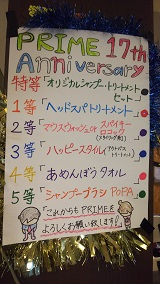 PRIME 17th
Anniversary
特等「オリジナルシャンプー・トリートメント
セット」
1等「ヘッドスパトリートメント」
2等「マウスウォッシュor スパイキー
ロコック
3等「ハッピースタイル(アウトバス
トリートメント)」
4等「あめんぼうタオル」
5等「シャンプーブラシ POPA」
これからもPRIMEを
よろしくお願い致します!